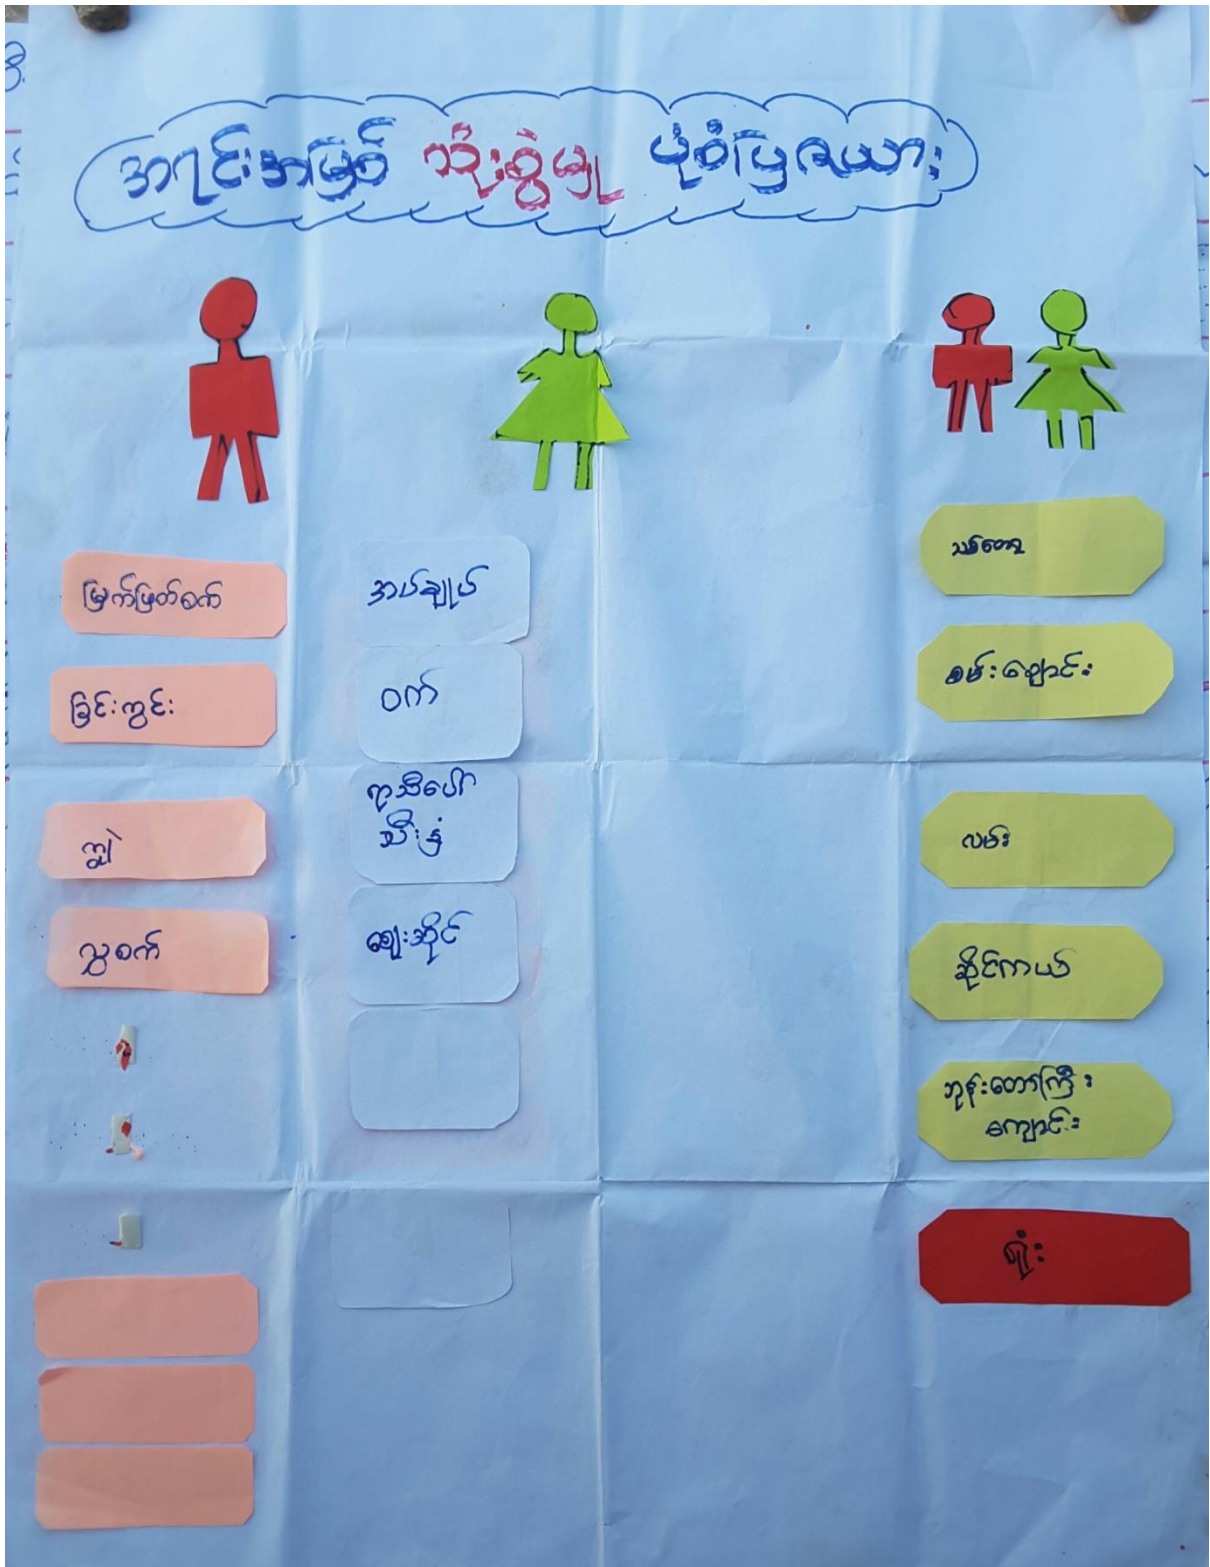 အရင်းအမြစ် သုံးစွဲမှု ပုံစံပြဇယား
မြက်ဖြတ်စက်
ခြင်းကွင်း
ကျွဲ
လွှစက်
အပ်ချုပ်
ဝက်
ရာသီပေါ်
သီးနှံ
ဈေးဆိုင်
သစ်တော
စမ်းချောင်း
လမ်း
ဆိုင်ကယ်
ဘုန်းတော်ကြီး
ကျောင်း
ရုံး